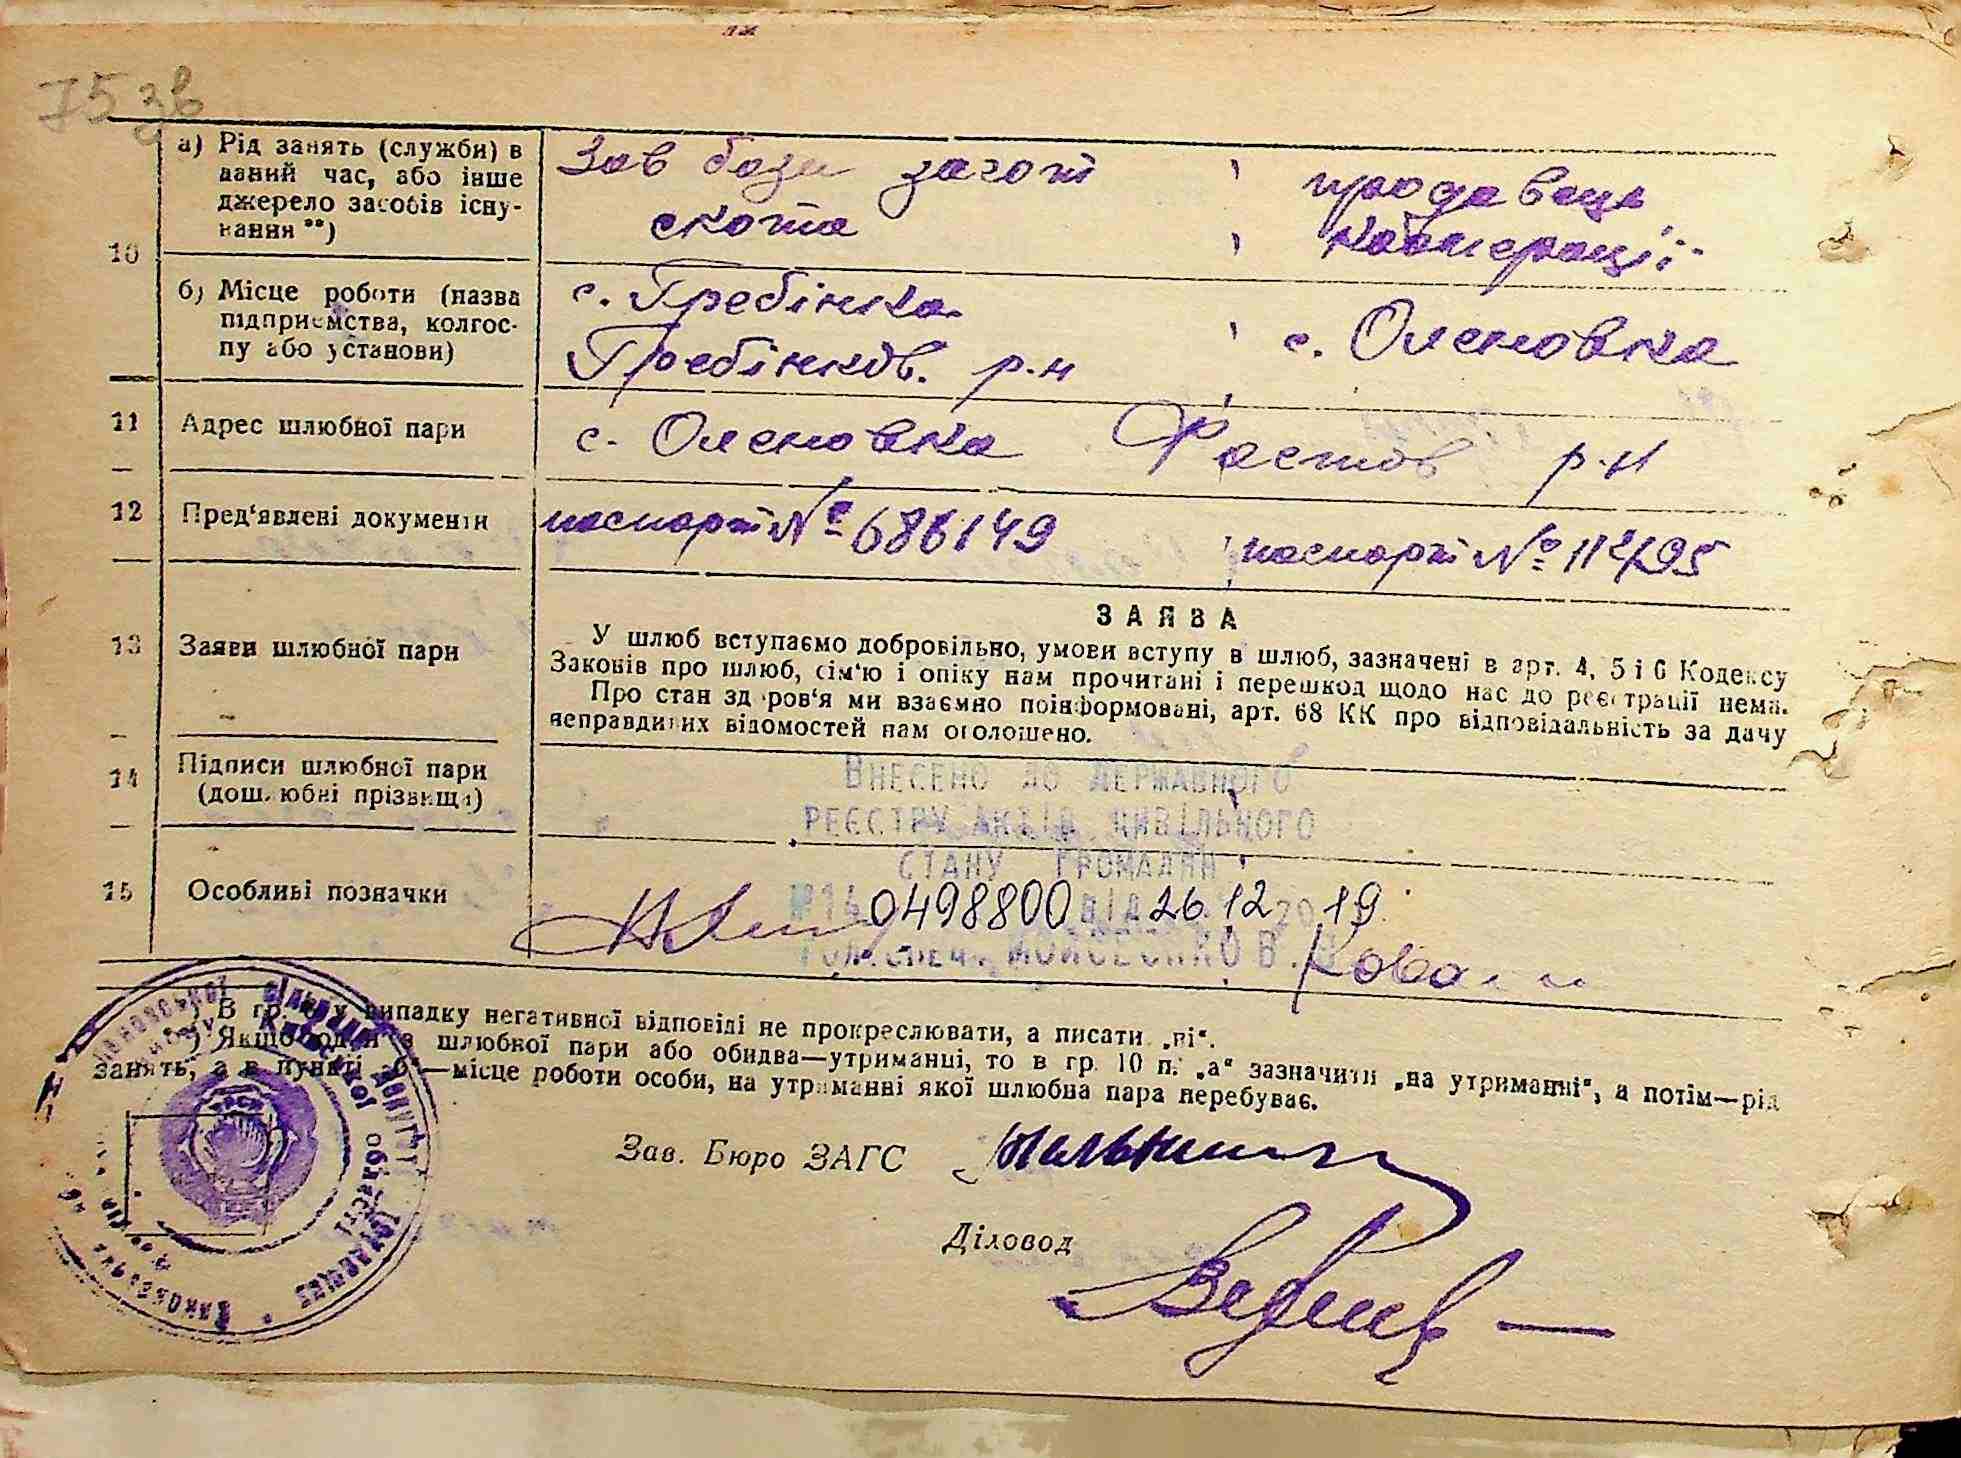 75 зв
10
а) Рід занять (служби) в
даний час, або інше
джерело засобів існу-
вання **)
Зав бази загот
скота
продавець
кооперації
б) Місце роботи (назва
підприємства, колгос-
пу або установи)
с. Гребінка
Гребінков. р-н
с. Оленовка
11
Адрес шлюбної пари
с. Оленовка Фастов р-н
12
Пред'явлені документи
паспорт № 686149
паспорт №
13
Заяви шлюбної пари
ЗАЯВА
У шлюб вступаємо добровільно, умови вступу в шлюб, зазначені в арт. 4, 5 і 6 Кодексу
Законів про шлюб, сім'ю і опіку нам прочитані і перешкод щодо нас до реєстрації нема.
Про стан здоров'я ми взаємно поінформовані, арт. 68 КК про відповідальність за дачу
неправдивих відомостей нам оголошено.
14
Підписи шлюбної пари
(дошлюбні прізвища)
ВНЕСЕНО ДО ДЕРЖАВНОГО
РЕЄСТРУ АКТІВ ЦИВІЛЬНОГО
СТАНУ ГРОМАДЯН
15
Особливі позначки
№ 140498800 від 26.12 2019
МОЙСЕЄНКО В.
*) В гр. у випадку негативної відповіді не прокреслювати, а писати „ні".
**) Якщо один з шлюбної пари або обидва—утриманці, то в гр. 10 п. „а" зазначити „на утриманні", а потім—рід
занять, а в пункті „б"—місце роботи особи, на утриманні якої шлюбна пара перебуває.
Зав. Бюро ЗАГС
Діловод
Київської області